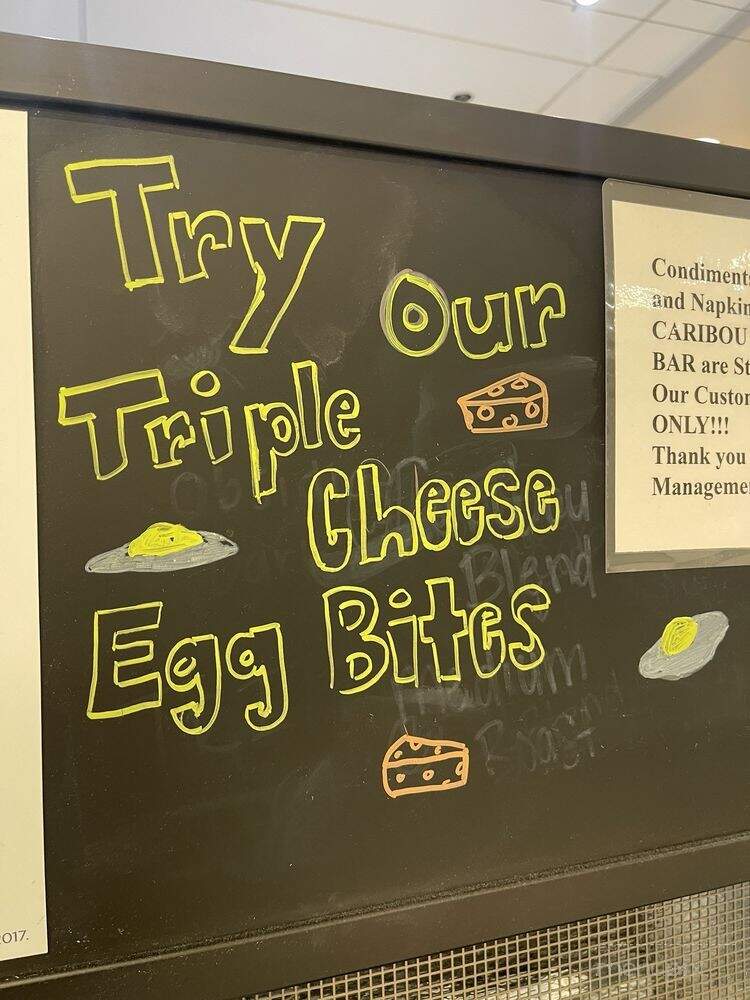 Try
Our
Triple
Cheese
Egg Bites
Blend
Medium
Roast
Condiments
and Napkin
CARIBOU
BAR are St
Our Custom
ONLY!!!
Thank you
Management
2017.